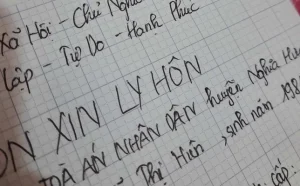 Xã Hội - Chủ Nghĩa
Lập - Tự Do - Hạnh Phúc
ĐƠN XIN LY HÔN
TOÀ ÁN NHÂN DÂN huyện Nghĩa
Thị Hiền, sinh năm 198
cấp: